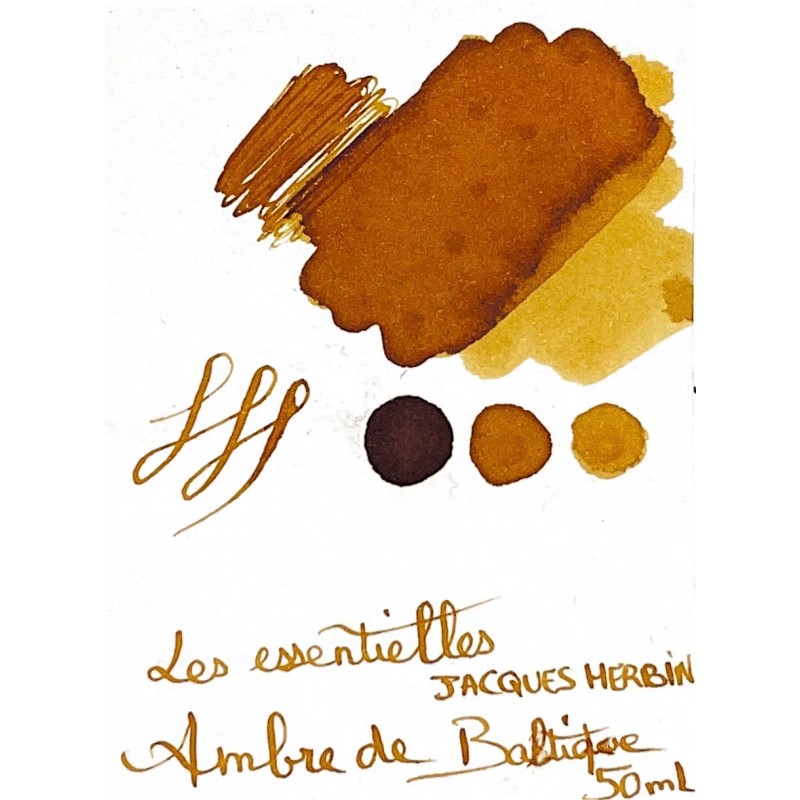 Les essentielles
JACQUES HERBIN
Ambre de Baltique
50mL